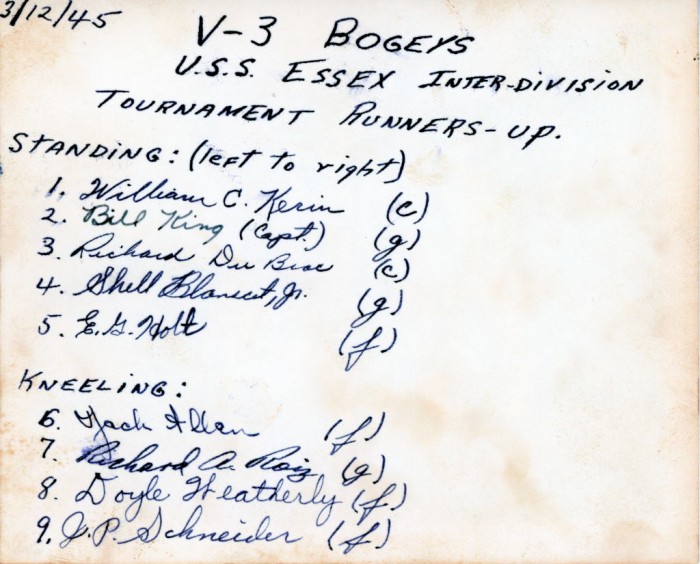 3/12/45
V-3 BOGEYS
U.S.S. ESSEX INTER-DIVISION
TOURNAMENT RUNNERS-UP.
STANDING: (left to right)
1. William C. Kerin (c)
2. Bill King (Capt.) (g)
3. Richard Du Brac (c)
4. Shell (g)
5. E.G. Holt (f)
KNEELING:
6. Jack Allan (f)
7. Richard A. (g)
8. Doyle Weatherly (f)
9. J.P. Schneider (f)